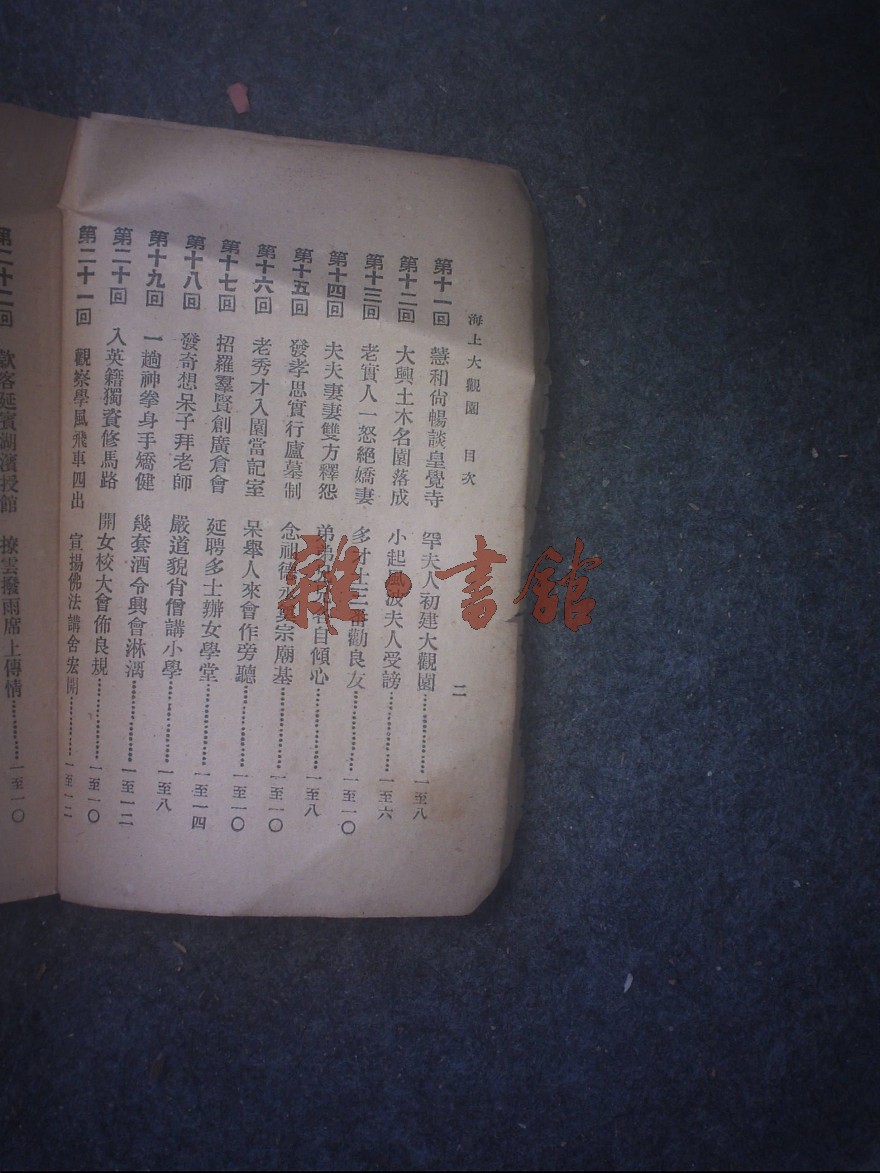 海上大觀園 目次 二
第十一回 慧和尙暢談皇覺寺 罕夫人初建大觀園 一至八
第十二回 大興土木名園落成 小起風波夫人受謗 一至六
第十三回 老實人一怒絕嬌妻 多才士三番勸良友 一至一〇
第十四回 夫夫妻妻雙方釋怨 弟弟兄兄各自傾心 一至八
第十五回 發孝思實行廬墓制 念祖德永奠宗廟基 一至一〇
第十六回 老秀才入園當記室 呆舉人來會作旁聽 一至一〇
第十七回 招羅羣賢創廣倉會 延聘多士辦女學堂 一至一四
第十八回 發奇想呆子拜老師 嚴道貌肖僧講小學 一至八
第十九回 一趟神拳身手矯健 幾套酒令興會淋漓 一至一二
第二十回 入英籍獨資修馬路 開女校大會佈良規 一至一〇
第二十一回 觀察學風飛車四出 宣揚佛法講舍宏開 一至一二
第二十二回 款客延賓湖濱授館 撩雲撥雨席上傳情 一至一〇
雜·書館